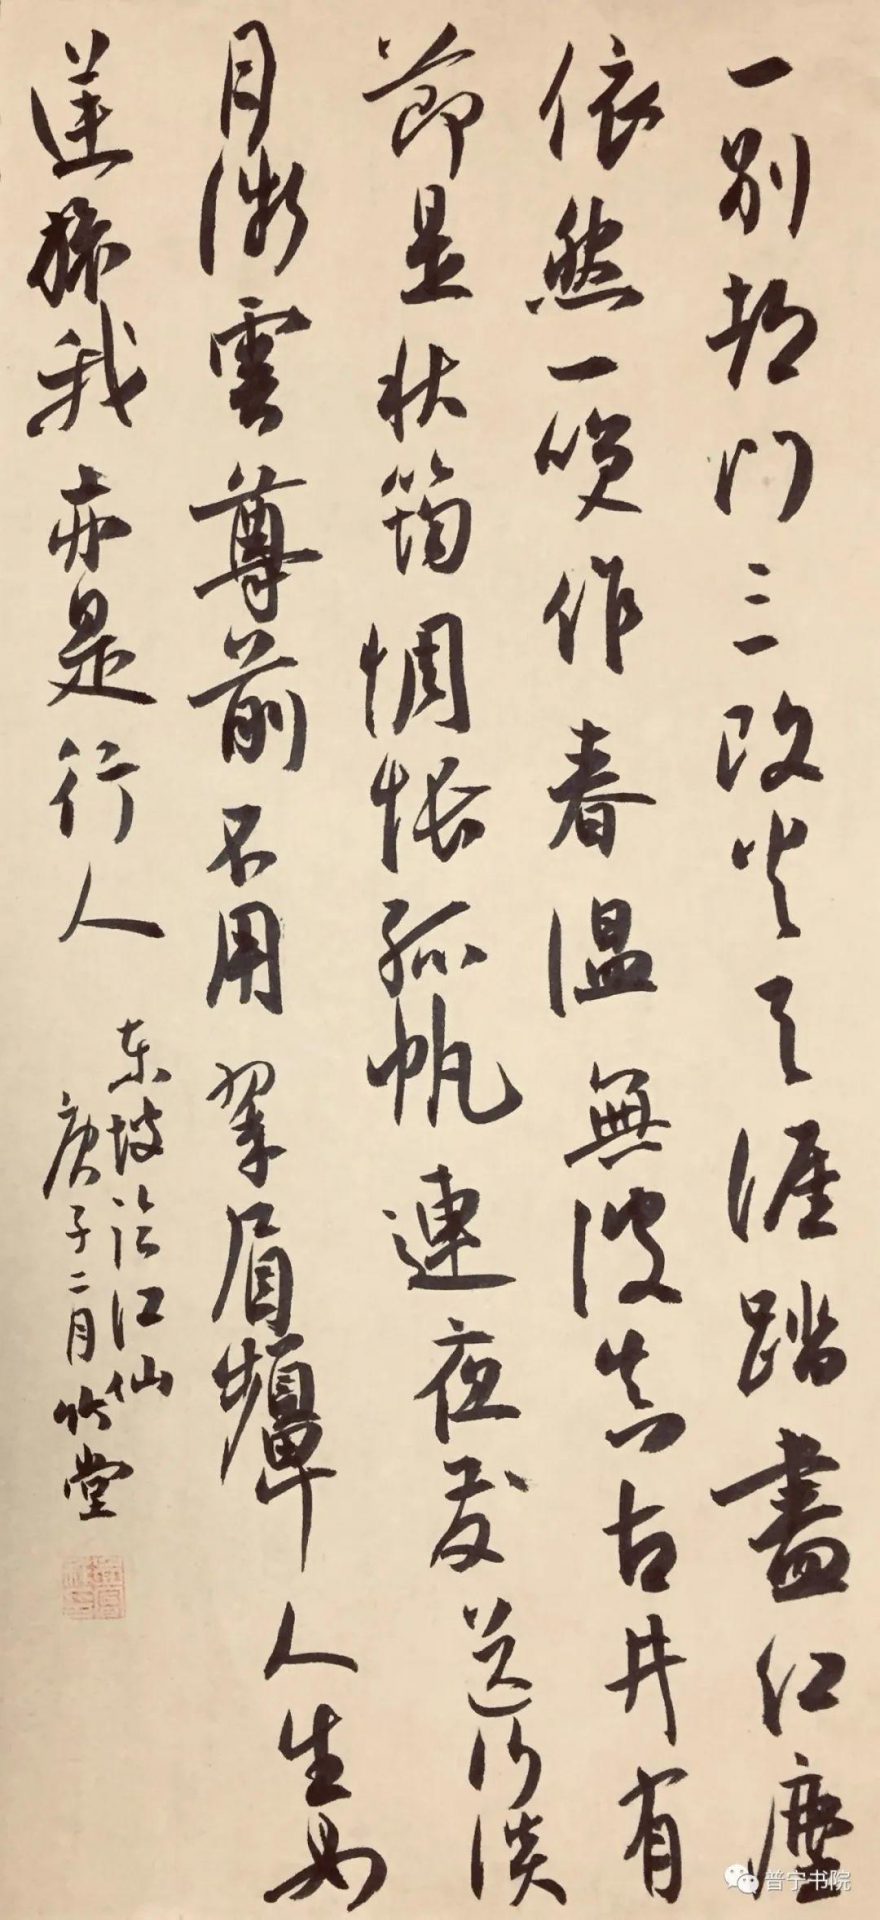 一别都门三改火天涯踏盡红塵
依然一咲作春温無波真古井有
節是秋筠惆悵孤帆連夜发送行淡
月微雲尊前不用翠眉顰人生如
逆旅我亦是行人
东坡临江仙
庚子二月竹堂
普宁书院